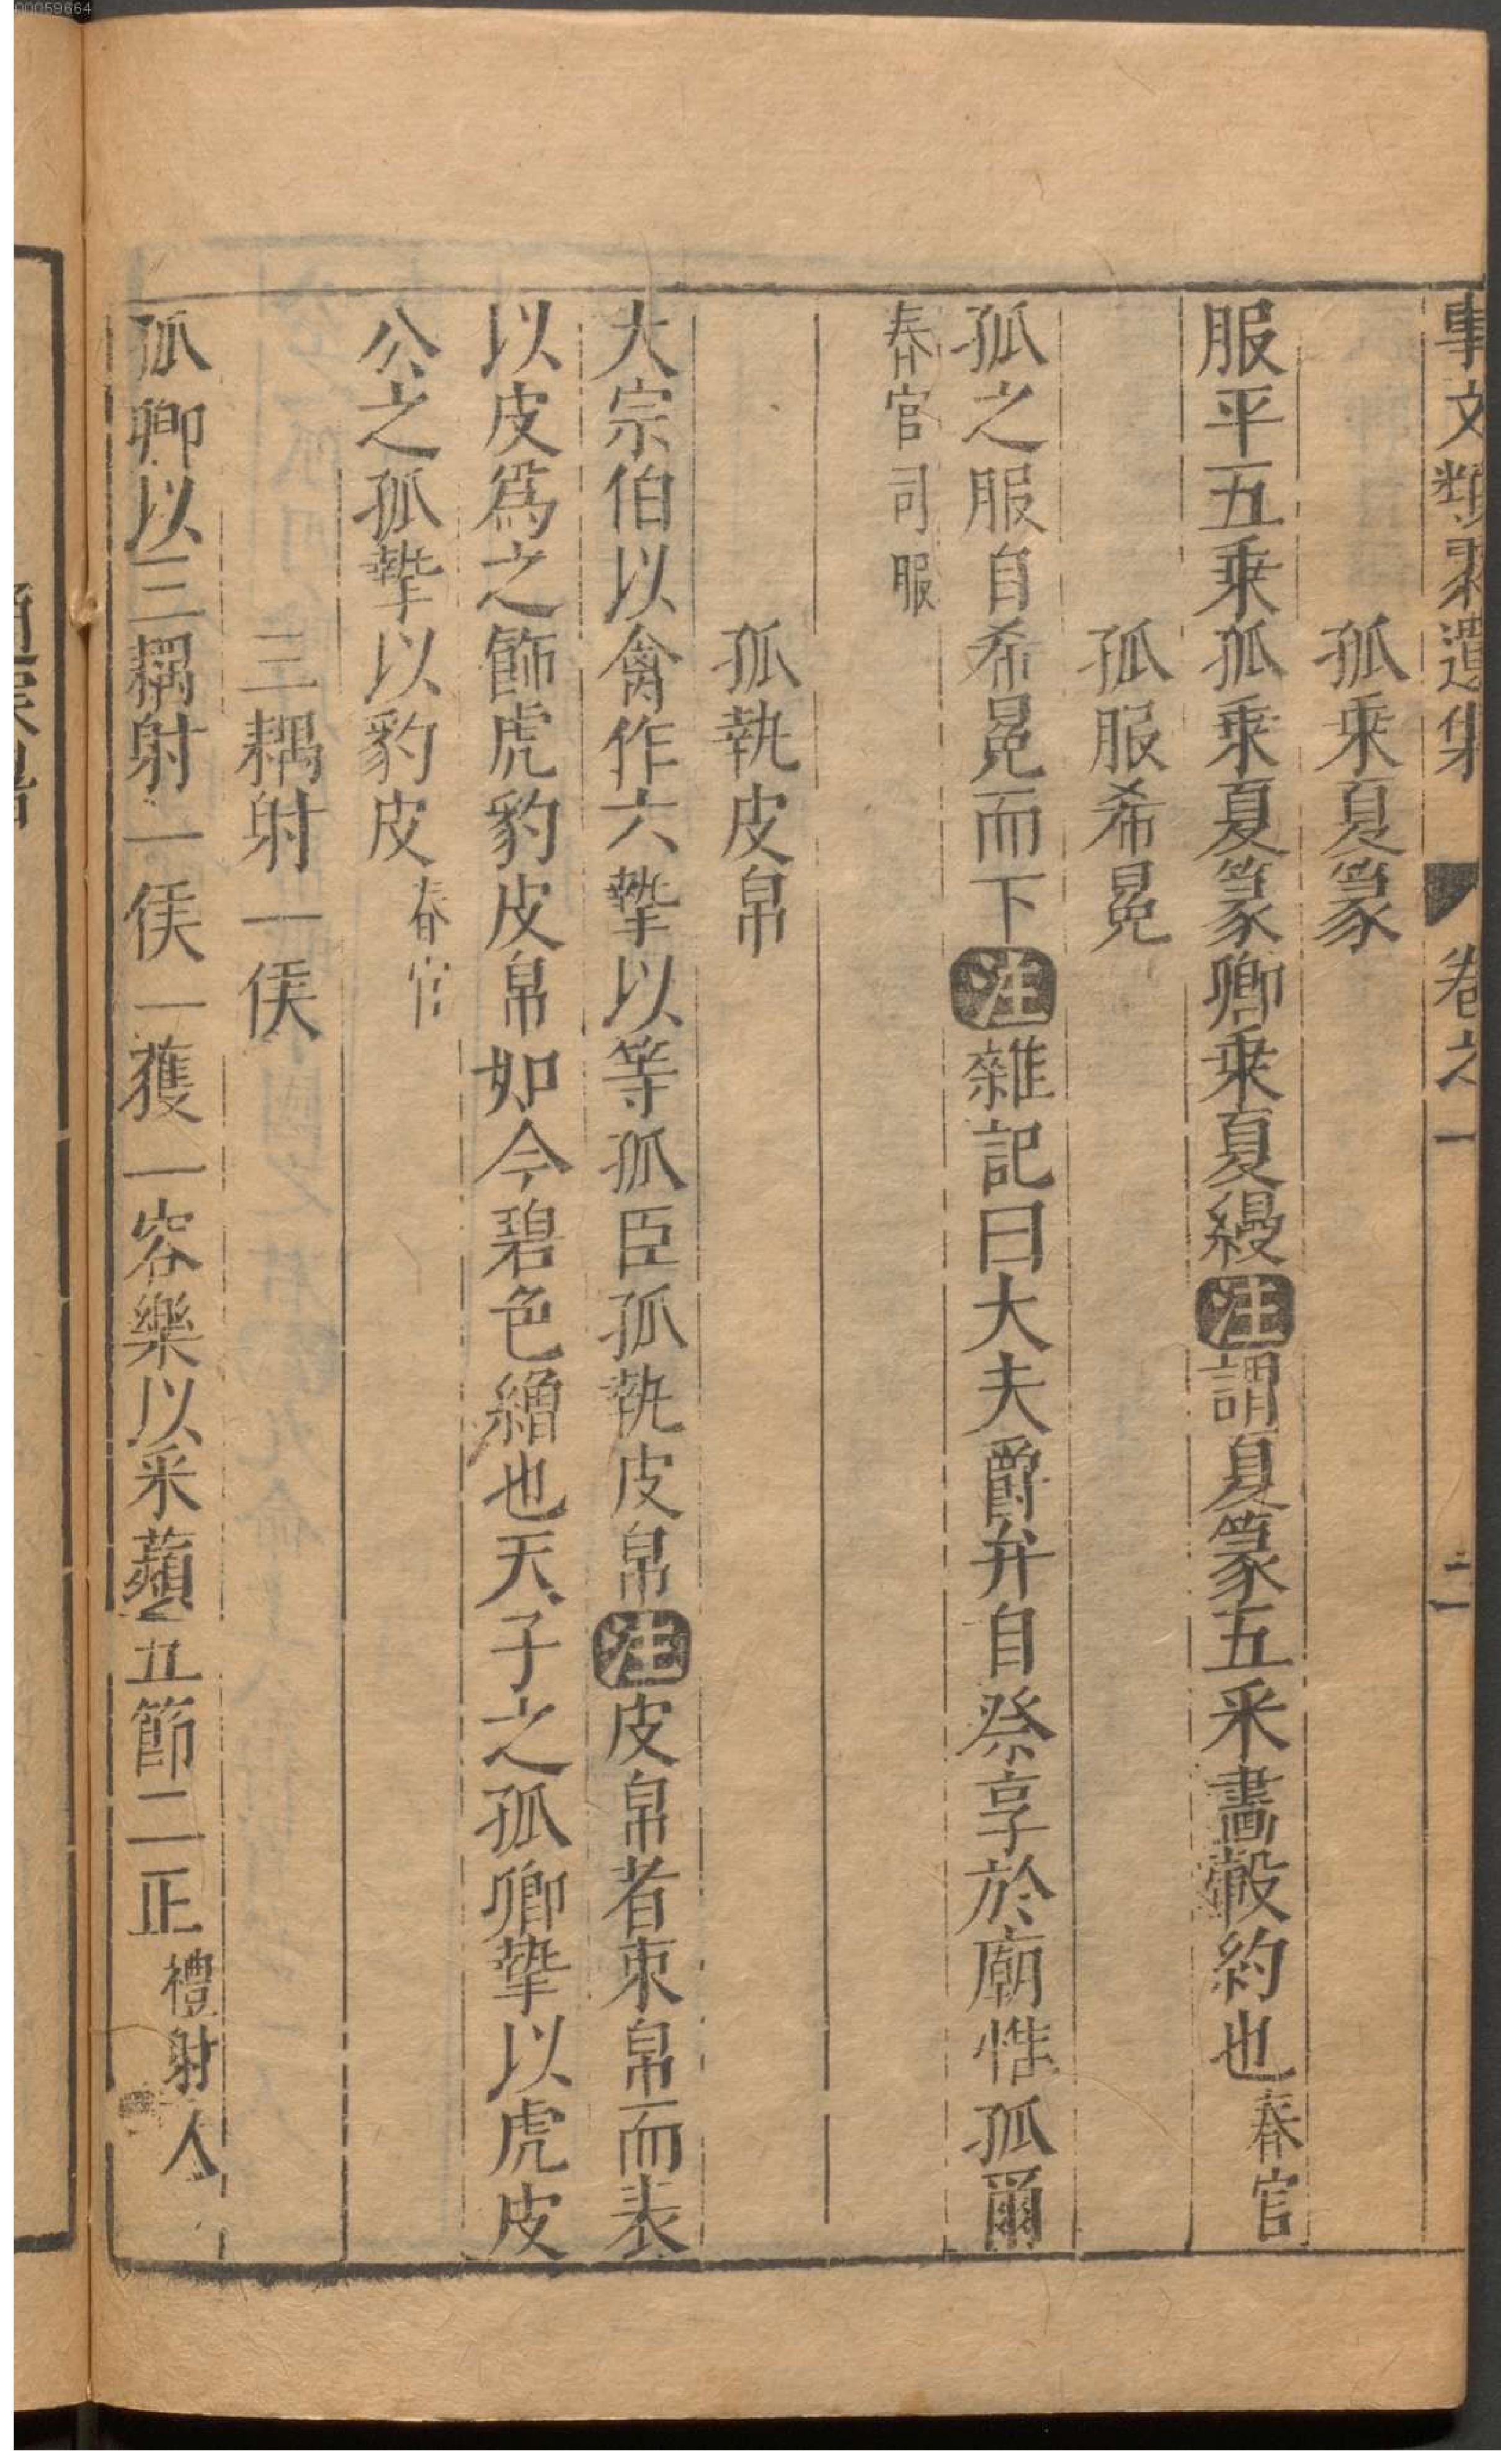 00059664
事文類聚遺集 卷之一 二
孤乘夏篆
服平五乘孤乘夏篆卿乘夏縵注謂夏篆五采畵轂約也春官
孤服希冕
孤之服自希冕而下注雜記曰大夫爵弁自祭享於廟惟孤爾
春官司服
孤執皮帛
大宗伯以禽作六摯以等孤臣孤執皮帛注皮帛者束帛而表
以皮爲之飾虎豹皮帛如今碧色繒也天子之孤卿摯以虎皮
公之孤摯以豹皮春官
三耦射一侯
孤卿以三耦射一侯一獲一容樂以采蘋五節二正禮射人